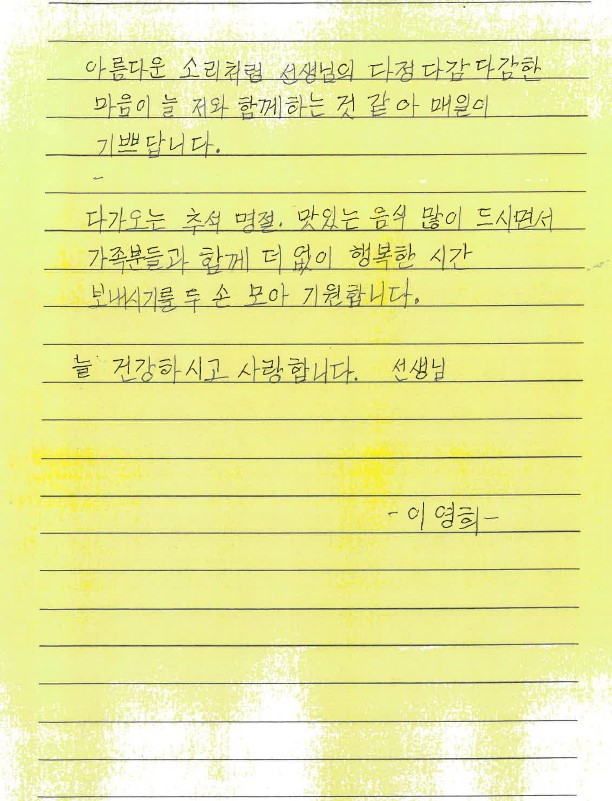 아름다운 소리처럼 선생님의 다정 다감 다감한
마음이 늘 저와 함께하는 것 같아 매일이
기쁘답니다.
-
다가오는 추석 명절. 맛있는 음식 많이 드시면서
가족분들과 함께 더 없이 행복한 시간
보내시기를 두 손 모아 기원합니다.
늘 건강하시고 사랑합니다. 선생님
- 이영희 -